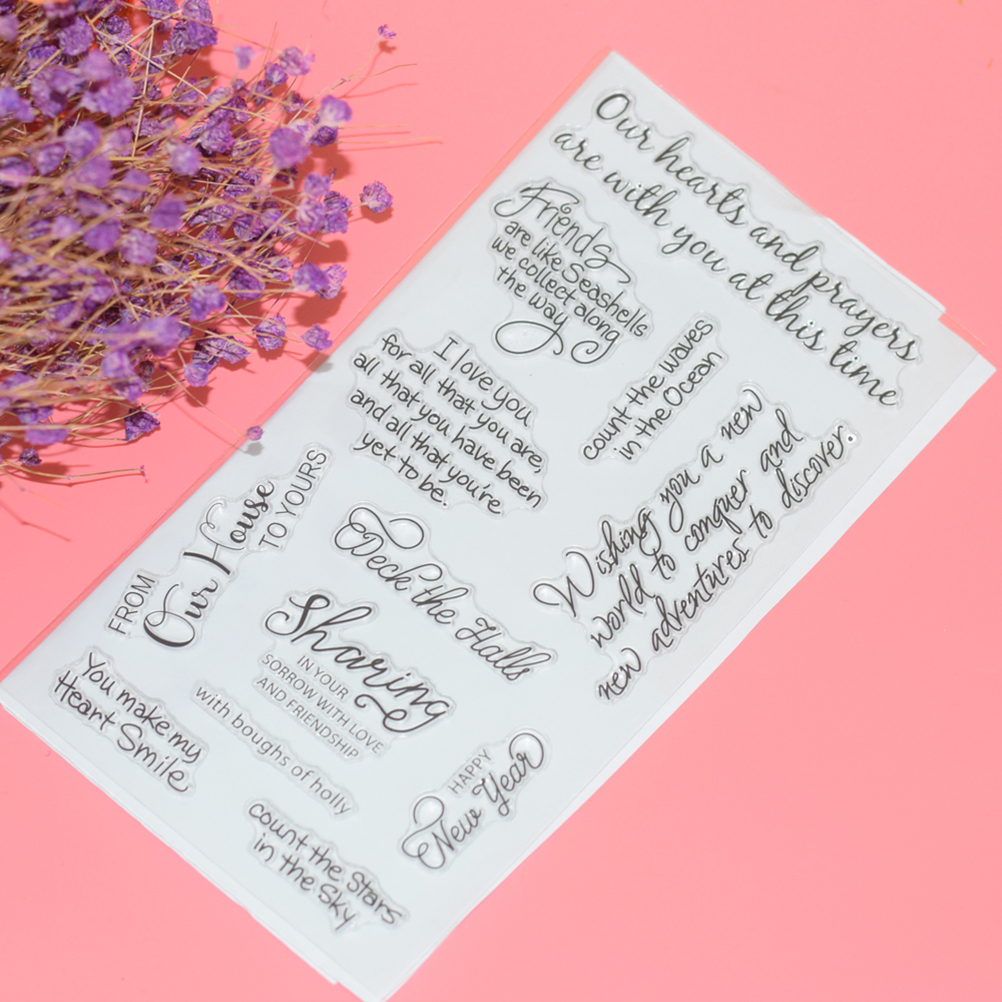 Our hearts and prayers
are with you at this time
Friends
are like Seashells
we collect along
the way
count the waves
in the Ocean
I love you
for all that you are,
all that you have been
and all that you're
yet to be.
Wishing you a new
world to conquer and
new adventures to discover.
FROM
Our House
TO YOURS
Deck the Halls
Sharing
IN YOUR
SORROW WITH LOVE
AND FRIENDSHIP
You make my
Heart Smile
with boughs of holly
HAPPY
New Year
count the Stars
in the Sky